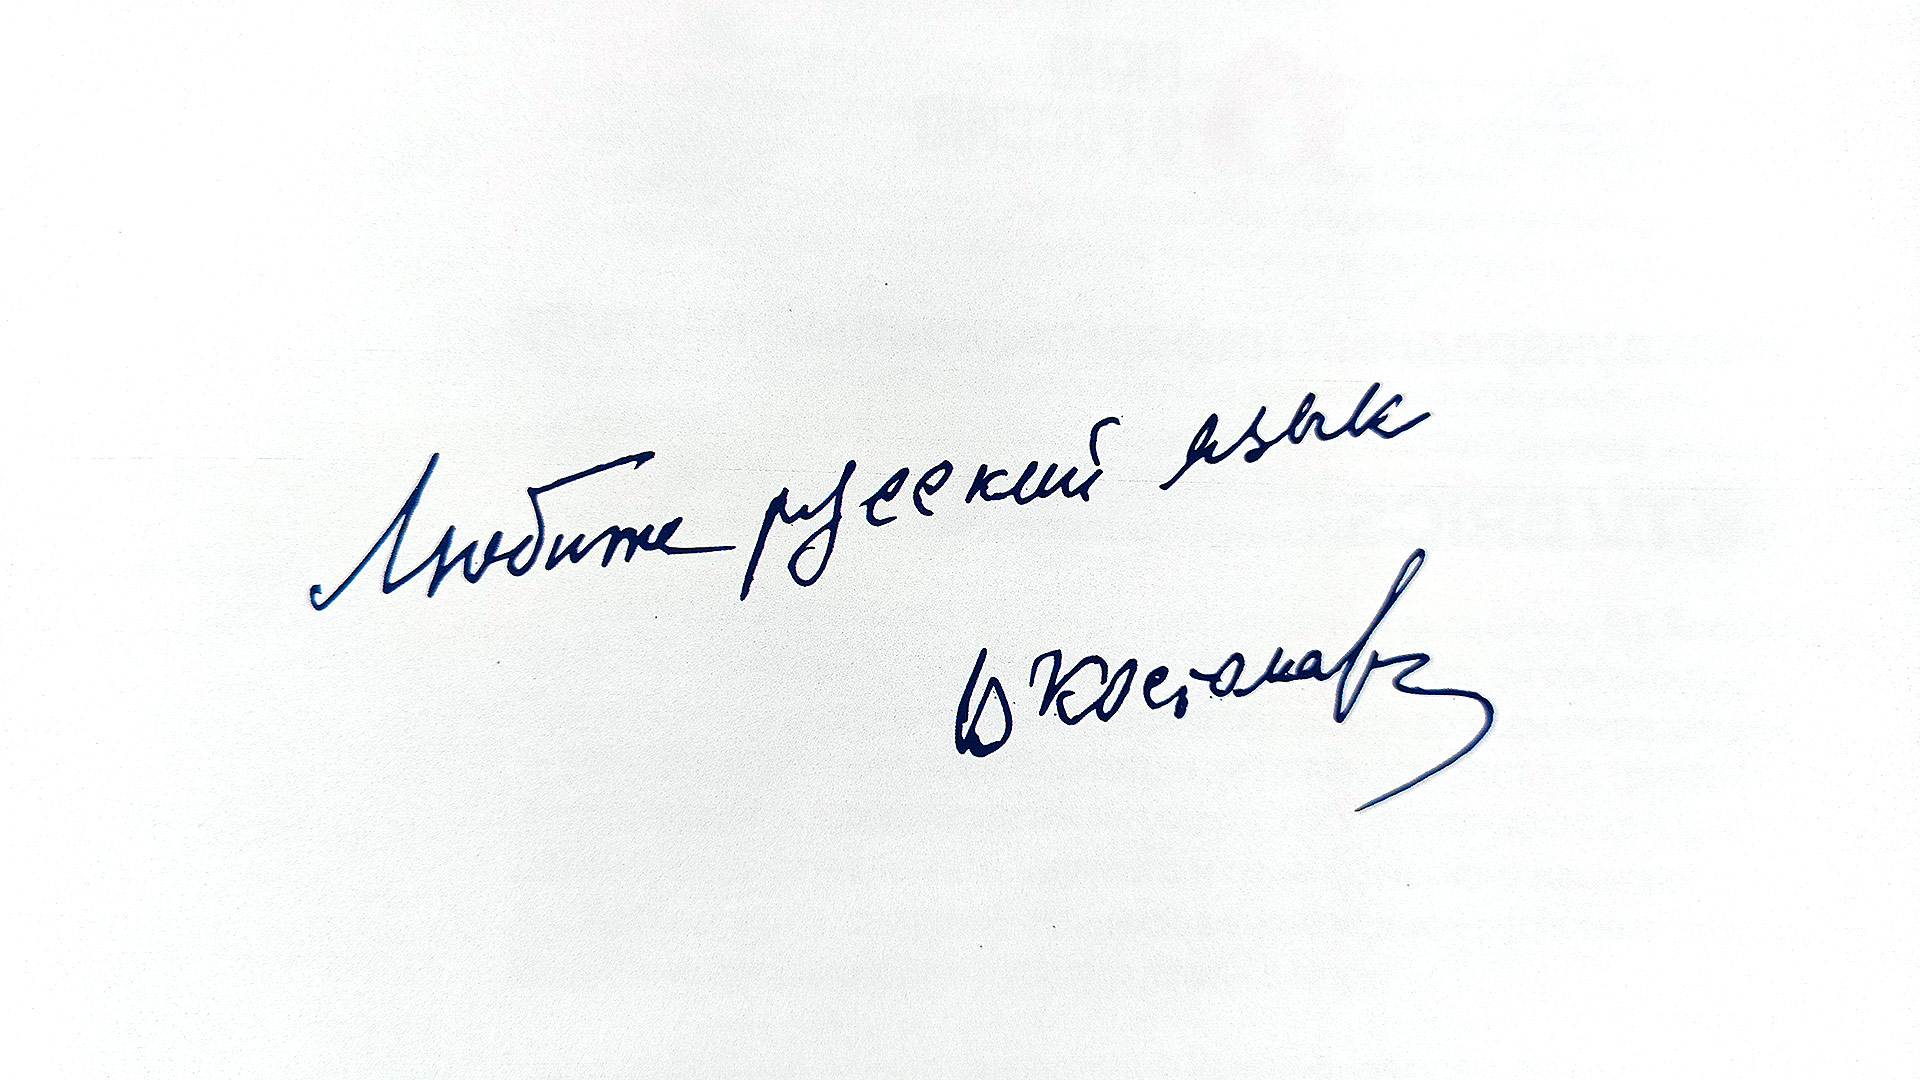 Любите русский язык
ЮКостомаров